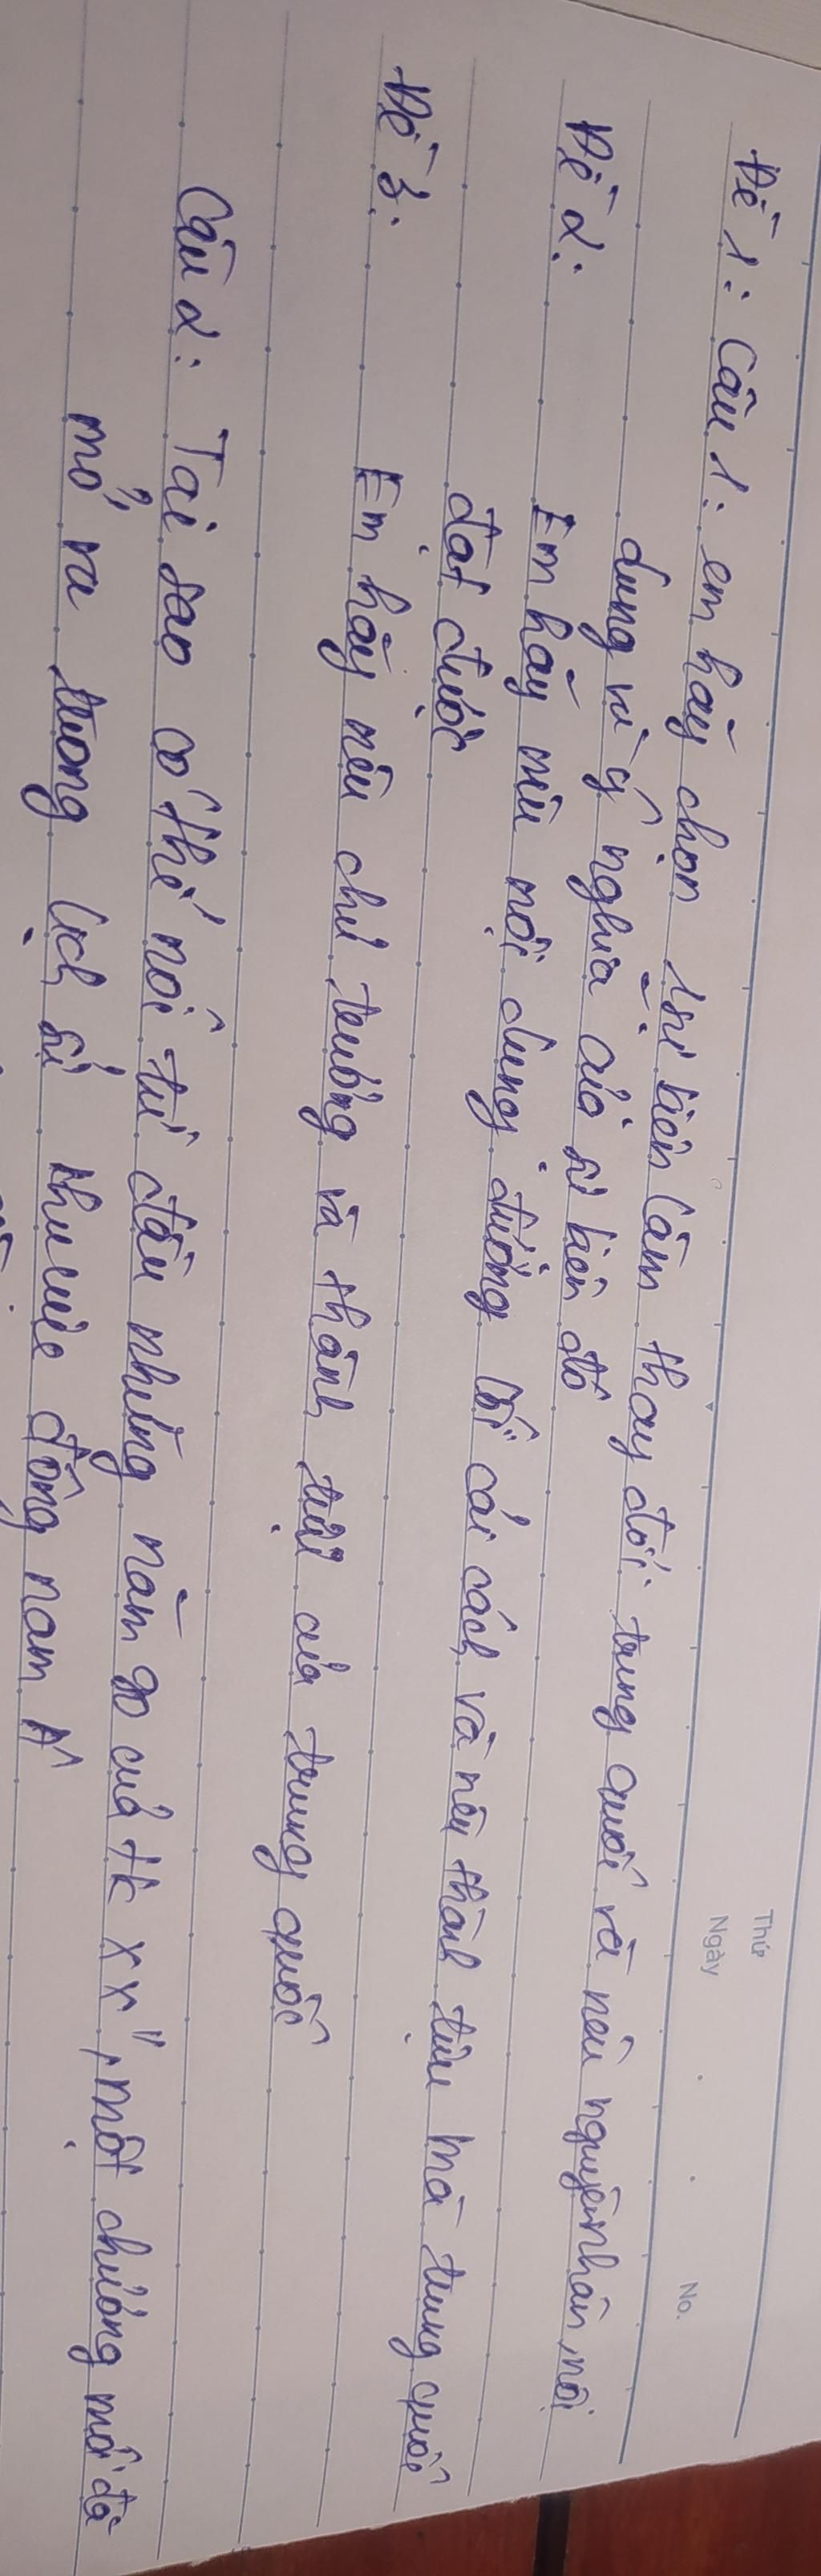 Thứ
Ngày
No.
Đề 1: Câu 1: em hãy chọn 1 sự kiện làm thay đổi trung quốc và nêu nguyên nhân, nội
dung và ý nghĩa của sự kiện đó
Đề 2: Em hãy nêu nội dung đường lối cải cách và nêu thành tựu mà trung quốc
đạt được
Đề 3: Em hãy nêu chủ trương và thành tựu của trung quốc
Câu 2: Tại sao có thể nói từ đầu những năm 90 của tk XX", một chương mới đã
mở ra trong lịch sử khu vực đông nam Á"